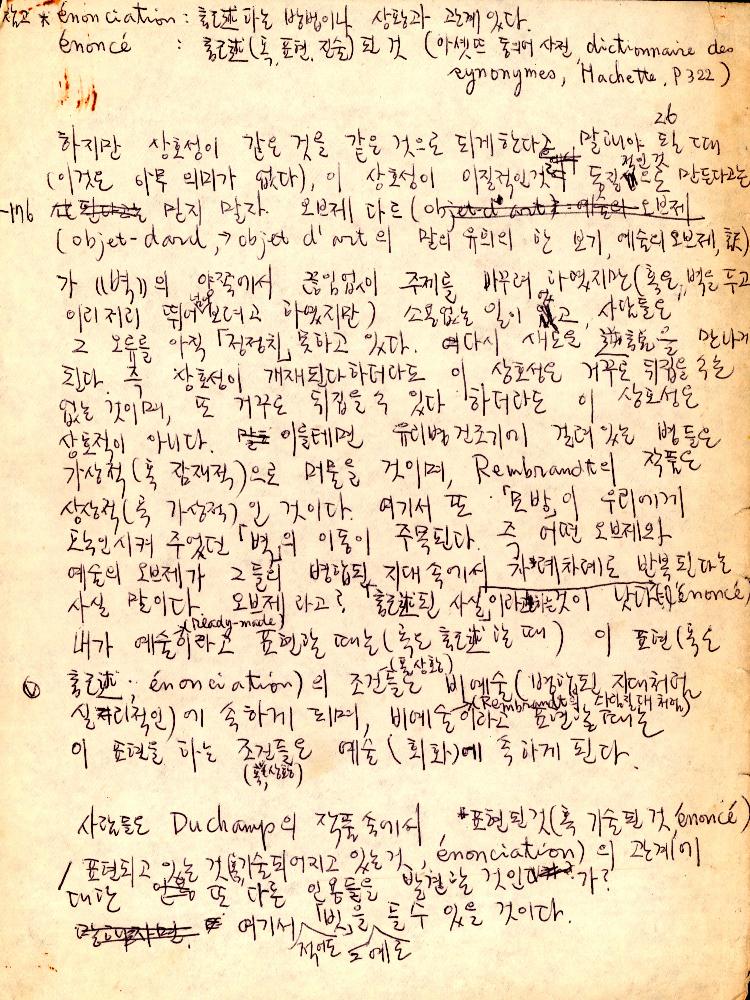 참고 * énonciation : 記述하는 방법이나 상황과 관계있다.
énoncé : 記述(혹, 표현, 진술)된 것 (아셋뜨 동의어 사전, dictionnaire des
synonymes, Hachette, P322)
26
하지만 상호성이 같은 것을 같은 것으로 되게한다고 말해야 될 때
(이것은 아무 의미가 없다), 이 상호성이 이질적인것을 동질적인것으로 만든다고는
-176 믿지 말자. 오브제 다르 (objet-d'art): 예술의 오브제
(objet-dard, → objet d'art의 말의 유희의 한 보기, 예술의 오브제, 訳)
가 《벽》의 양쪽에서 끊임없이 주제를 바꾸려 하였지만(혹은, 벽을 두고
이리저리 뛰어넘어보려고 하였지만) 소용없는 일이었고, 사람들은
그 오류를 아직 「정정치」 못하고 있다. 여다시 새로운 逆說을 만나게
된다. 즉 상호성이 개재된다하더라도 이 상호성은 거꾸로 뒤집을 수는
없는 것이며, 또 거꾸로 뒤집을 수 있다 하더라도 이 상호성은
상호적이 아니다. 이를테면 유리병건조기에 걸려있는 병들은
가상적(혹 잠재적)으로 머물을 것이며, Rembrandt의 작품은
상상적(혹 가상적)인 것이다. 여기서 또 「모방」이 우리에게
확인시켜 주었던 「벽」의 이동이 주목된다. 즉 어떤 오브제와
예술의 오브제가 그들의 병합된 지대속에서 차례차례로 반복된다는
사실 말이다. 오브제 라고 記述된 사실이라는것이 낫다(énoncé)
(ready-made)
내가 예술이라고 표현할 때는(혹은 記述할 때) 이 표현(혹은
(혹 상황)
記述; énonciation)의 조건들은 비예술(병합된 지대처럼
(Rembrandt의 다림질대처럼)
실리적인)에 속하게 되며, 비예술이라고 표현할때는
이 표현을 하는 조건들은 예술(회화)에 속하게 된다.
(혹 상황)
사람들은 Duchamp의 작품속에서, 표현된것(혹 기술된 것, énoncé)
/ 표현되고 있는 것(혹 기술되어지고 있는것, énonciation)의 관계에
대한 또 다른 인용들을 발견할 것인가?
여기서 「빗」을 들 수 있을 것이다.
적어도 그 예로